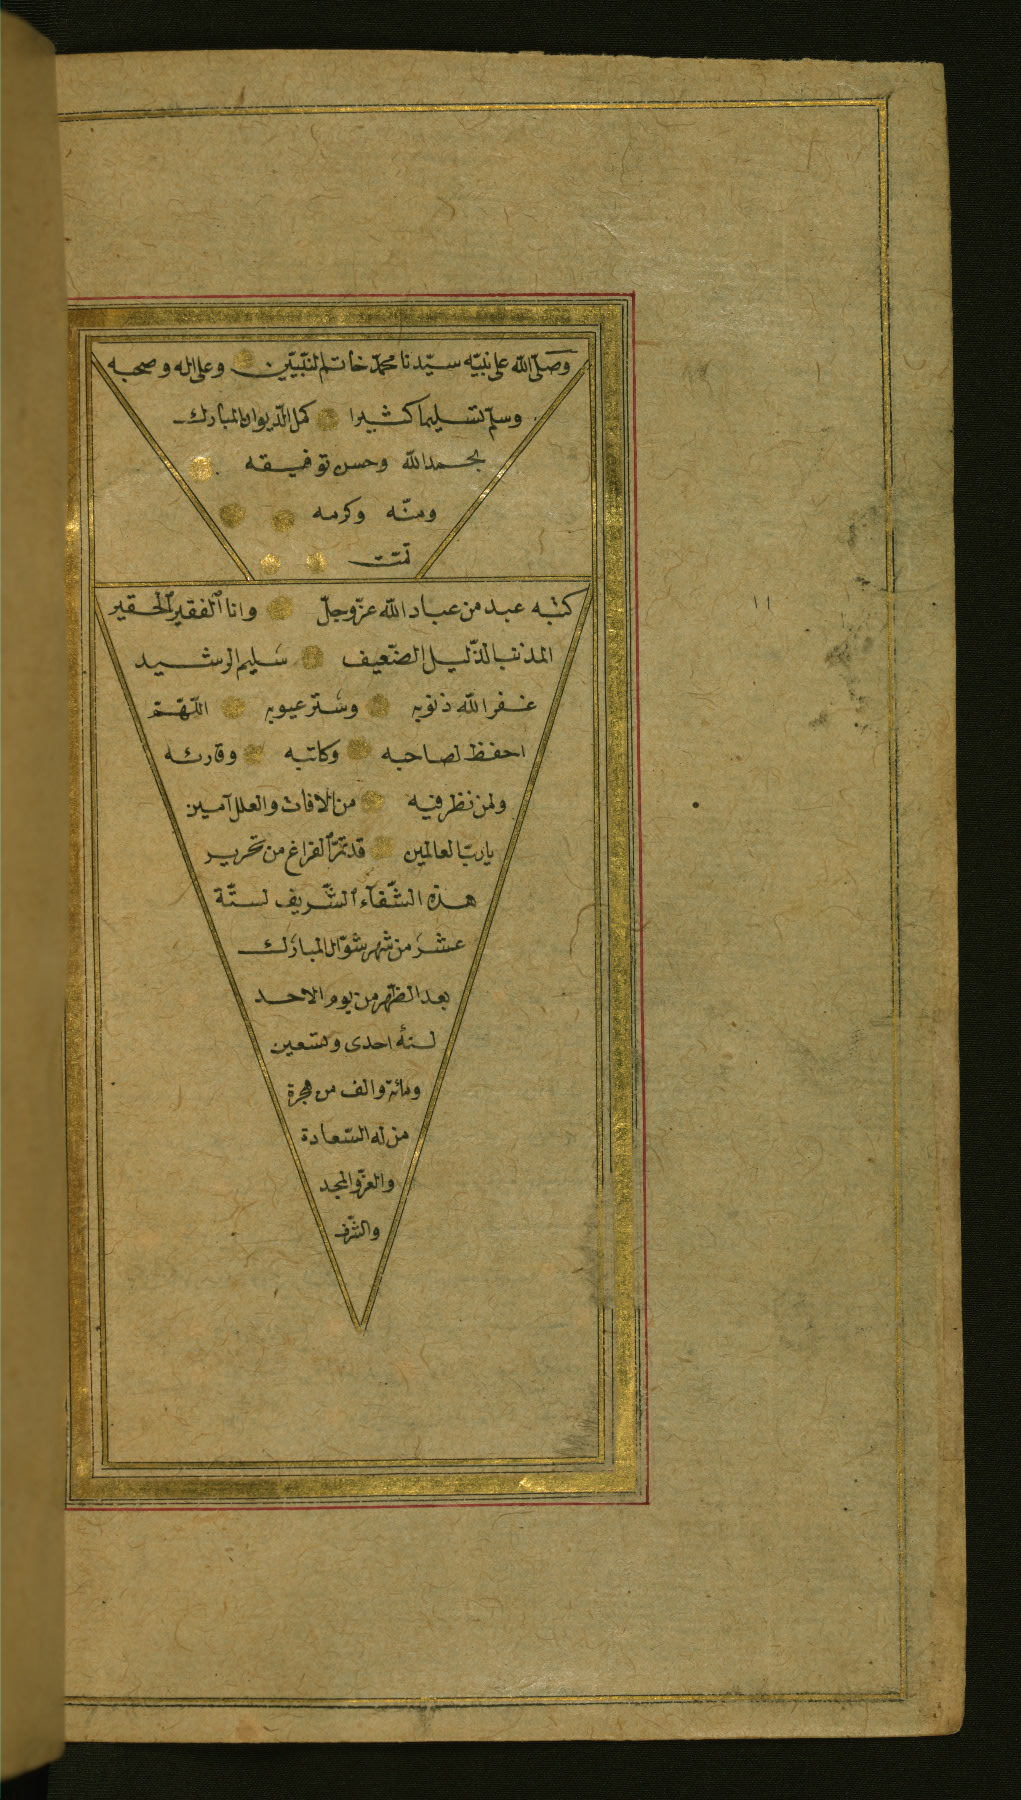 وصلّى الله على نبيّه سيّدنا محمّد خاتم النبيّين وعلى اله وصحبه
وسلّم تسليما كثيرا كمل الدّيوان المبارك
بحمد الله وحسن توفيقه
ومنّه وكرمه
تمّت
كتبه عبد من عباد الله عزّ وجلّ وانا الفقير الحقير
المذنب الذّليل الضّعيف سليم الرشيد
غفر الله ذنوبه وستر عيوبه اللّهمّ
احفظ لصاحبه وكاتبه وقارئه
ولمن نظر فيه من الافات والعلل آمين
ياربّ العالمين قد تمّ الفراغ من تحرير
هذه الشّفآء الشّريف لستّة
عشر من شهر شوّال المبارك
بعد الظّهر من يوم الاحد
لسنة احدى وتسعين
ومائة والف من هجرة
من له السّعادة
والعزّ والمجد
والشّرف
١١